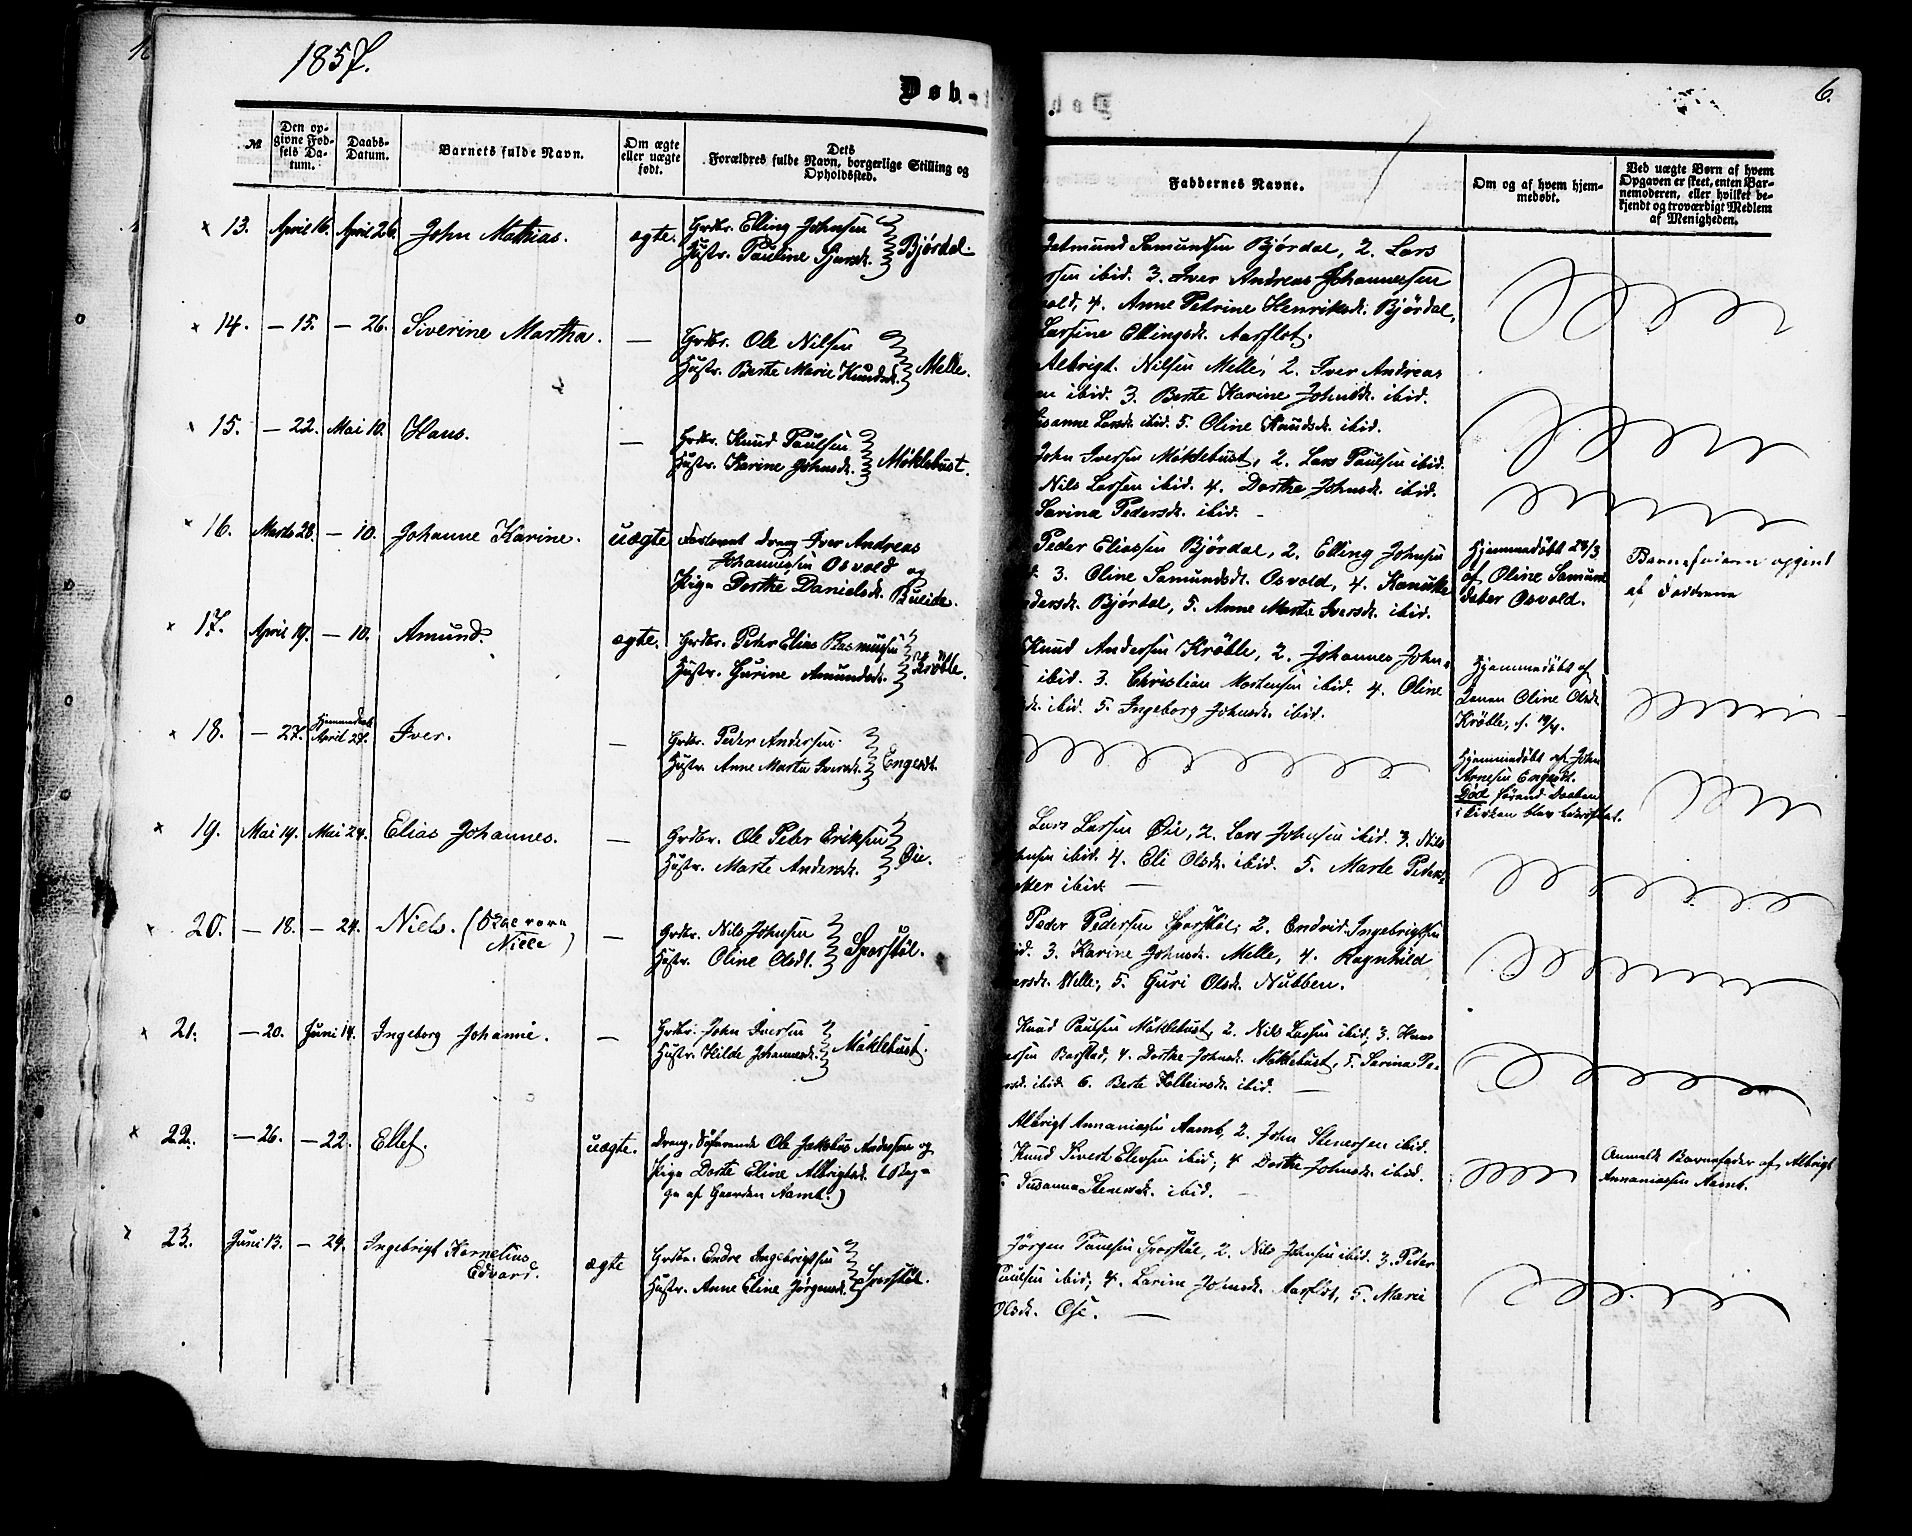 1857.
Døb-
6.
№
Den opgivne Fødsels Datum.
Daabs-Datum.
Barnets fulde Navn.
Om ægte eller uægte født.
Dets Forældres fulde Navn, borgerlige Stilling og Opholdssted.
Faddernes Navne.
Om og af hvem hjemmedøbt.
Ved uægte Børn af hvem Opgaven er skeet, enten Barnemoderen, eller hvilket bekjendt og troværdigt Medlem af Menigheden.
13. April 16. April 26. John Mathias. ægte.
Grdbr. Elling Johnsen
Hustr. Pauline Bjørdal.
Samundsen Bjørdal, 2. Lars
ibid. 3. Iver Andreas Johannessen
4. Anne Petrine Henriksdr. Bjørdal,
Larsine Ellingsdr. Aarflot.
14. — 15. — 26. Siverine Martha. —
Grdbr. Ole Nilsen
Hustr. Berte Marie Knudsdr. Melle.
Albrigt Nilsen Melle, 2. Iver Andreas
ibid. 3. Berte Karine Johnsdr. ibid.
Larsdr. ibid. 5. Oline Knudsdr. ibid.
15. — 22. Mai 10. Hans. —
Grdbr. Knud Paulsen
Hustr. Karine Johnsdr. Möklebust.
John Iversen Möklebust, 2. Lars Paulsen ibid.
Nils Larsen ibid. 4. Dorthe Johnsdr. ibid.
Sarina Pedersdr. ibid. —
16. Marts 28. — 10. Johanne Karine. uægte
Dreng Iver Andreas
Johannessen Osvold og
Pige Dorthe Danielsdr.
Peder Eliassen Bjørdal, 2. Elling Johnsen
3. Oline Samundsdr. Osvold, 4.
Bjørdal, 5. Anne Marte Iversdr. ibid.
Hjemmedøbt 28/3
af Oline Samunds
datter Osvold.
Barnefaderen opgivet
af Fadderne
17. April 19. — 10. Amund. ægte.
Grdbr. Peter Elias Rasmussen
Hustr. Gurine Amundsdr. Krøvle.
Knud Andersen Krøvle, 2. Johannes John-
ibid. 3. Christian Mortensen ibid. 4. Oline
ibid. 5. Ingeborg Johnsdr. ibid.
Hjemmedøbt af
Oline Olsdr.
Krøvle, d. 19/4.
18. — 27. Hjemmedøbt
April 27. Iver. —
Grdbr. Peder Andersen
Hustr. Anne Marta Iversdr. Engesdt.
Hjemmedøbt af John
Arnesen Engesdt.
Død førend Daaben
i Kirken blev
19. Mai 19. Mai 24. Elias Johannes. —
Grdbr. Ole Peter Eriksen
Hustr. Marte Andersdr. Øie.
Lars Larsen Øie, 2. Lars Johnsen ibid. 3. Nils
ibid. 4. Eli Olsdr. ibid. 5. Marte Peders-
ibid. —
20. — 18. — 24. Niels. —
Grdbr. Nils Johnsen
Hustr. Oline Olsdt. Sporstøl.
Peder Pedersen Sporstøl, 2. Endrid Ingebrigtsen
3. Karine Johnsdr. Melle, 4. Ragnhild
Melle, 5. Guri Olsdr. Nubben.
21. — 20. Juni 14. Ingeborg Johanne. —
Grdbr. John Iversen
Hustr. Hilde Johannesdr. Möklebust.
Knud Paulsen Möklebust, 2. Nils Larsen ibid, 3. Hans
Barstad, 4. Dorthe Johnsdr. Möklebust, 5. Sarina Pe-
ibid. 6. Berte ibid. —
22. — 26. — 22. Ellef. uægte.
Dreng, Søfarende Ole Jakobus Andersen og
Pige Dorte Eline Albrigtsdr. (
af Gaarden Aamb.)
Albrigt Annaniassen Aamb, 2. John Stenersen ibid.
Knud Sivert Elevsen ibid; 4. Dorthe Johnsdr. ibid.
Susanna Stenersdr. ibid. —
Anmeldt Barnefader af Albrigt
Annaniassen Aamb.
23. Juni 13. — 24. Ingebrigt Kornelius
Edvard. ægte
Grdbr. Endre Ingebrigtsen
Hustr. Anne Eline Jørgensdr. Sporstøl.
Jørgen Paulsen Sporstøl, 2. Nils Johnsen ibid. 3. Peder
Paulsen ibid; 4. Larine Johnsdr. Aarflot, 5. Marie
Olsdr. Ose. —